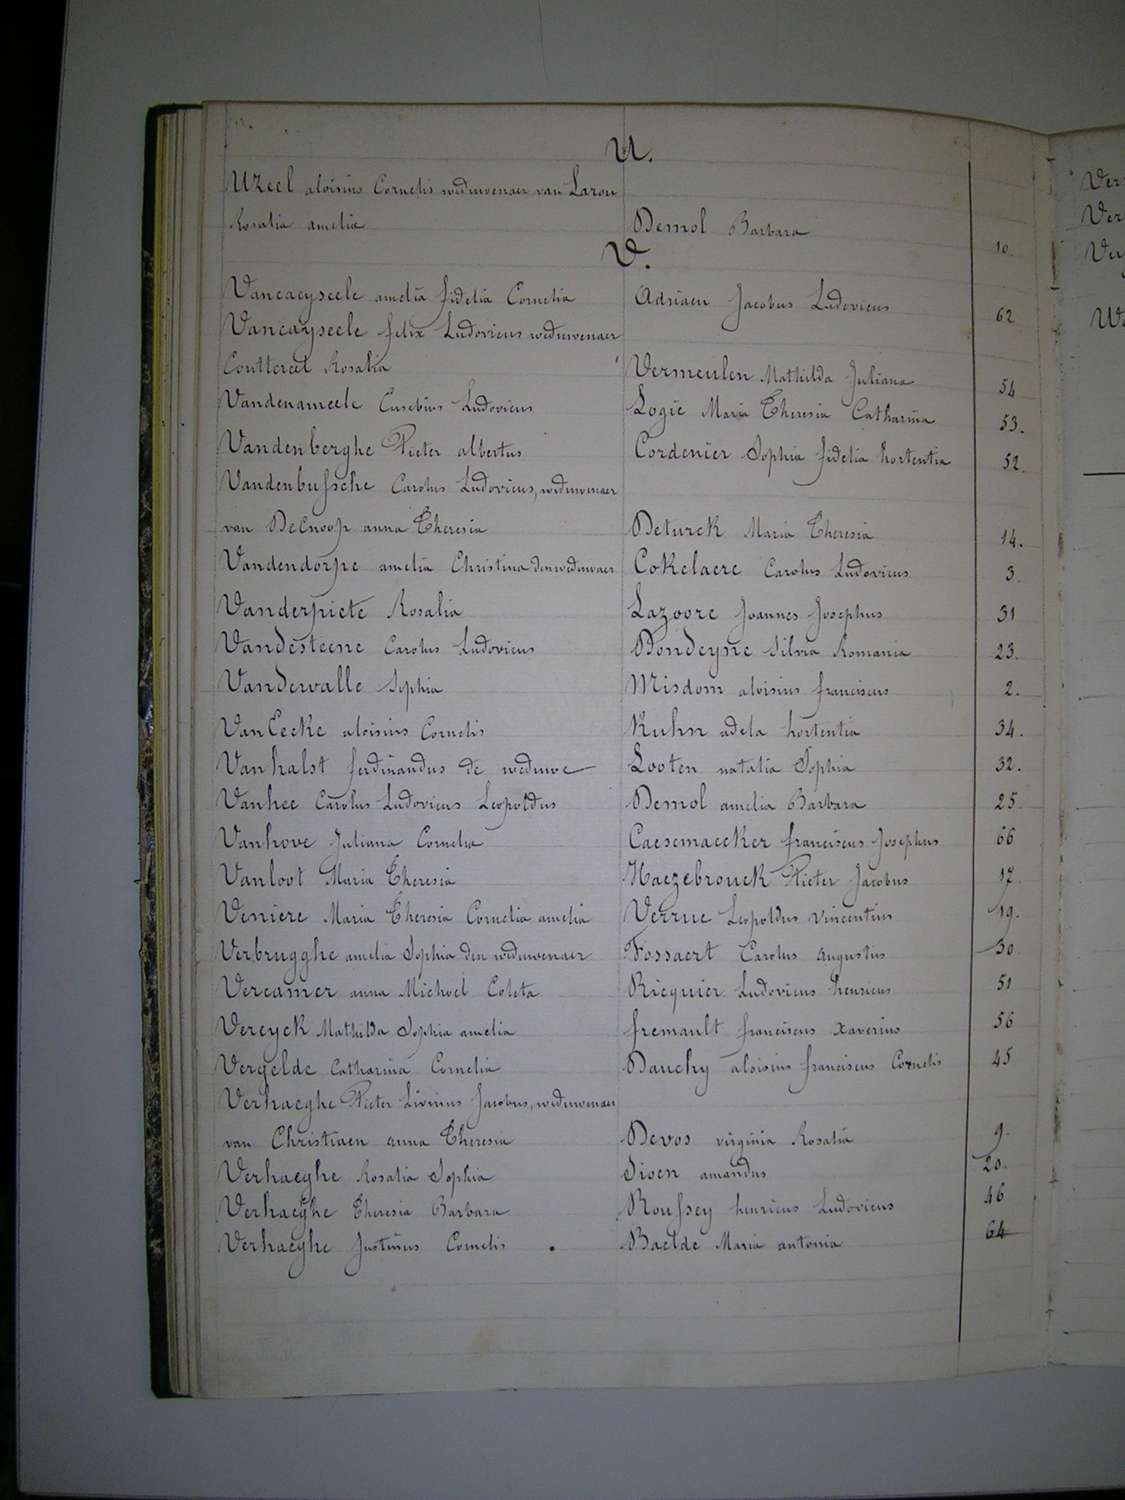 U.
Uzeel aloïsius Cornelis weduwenaer van Larou
Rosalia amelia Demol Barbara 10.
V.
Vancaeyseele amelia fidelia Cornelia Adriaen Jacobus Ludovicus 62
Vancayseele felix Ludovicus weduwenaer
Couttereel Rosalia Vermeulen Mathilda Juliana 54
Vandenameele Eusebius Ludovicus Logie Maria Theresia Catharina 53.
Vandenberghe Pieter albertus Cordenier Sophia fidelia hortentia 52.
Vandenbussche Carolus Ludovicus, weduwenaer
van Decnoop anna Theresia Deturck Maria Theresia 14.
Vandendorpe amelia Christina den weduwaer Cokelaere Carolus Ludovicus 3.
Vanderpiete Rosalia Lazoore Joannes Josephus 31
Vandesteene Carolus Ludovicus Dondeyne Silvia Romania 23.
Vandewalle Sophia Misdom aloisius franciscus 2.
VanEecke aloisius Cornelis Kuhn adela hortentia 34.
Vanhalst ferdinandus de weduwe Looten natalia Sophia 32.
Vanhee Carolus Ludovicus Leopoldus Demol amelia Barbara 25.
Vanhove Juliana Cornelia Caesemaecker franciscus Josephus 66
Vanloot Maria Theresia Haezebrouck Pieter Jacobus 17.
Veniere Maria Theresia Cornelia amelia Verrue Leopoldus Vincentius 19.
Verbrugghe amelia Sophia den weduwenaer Fossaert Carolus augustus 30.
Vercamer anna Michoel Coleta Ricquier Ludovicus henricus 51
Vercyck Mathilda Sophia amelia fremault franciscus Xaverius 56
Vergelde Catharina Cornelia Dauchy aloisius franciscus Cornelis 45
Verhaeghe Pieter Livinus Jacobus, weduwenaer
van Christiaen anna Theresia Devos virginia Rosalia 9.
Verhaeghe Rosalia Sophia Sioen amandus 20.
Verhaeghe Theresia Barbara Roussey henricus Ludovicus 46
Verhaeghe Justinus Cornelis Baelde Maria antonia 64